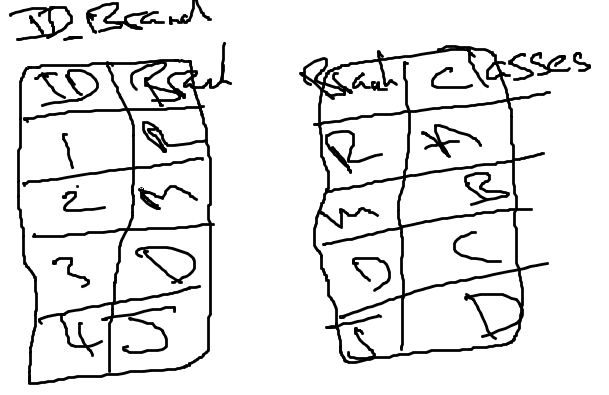 ID_Brand
ID Brand
1 R
2 M
3 D
4 J
Brand Classes
R A
M B
D C
J D